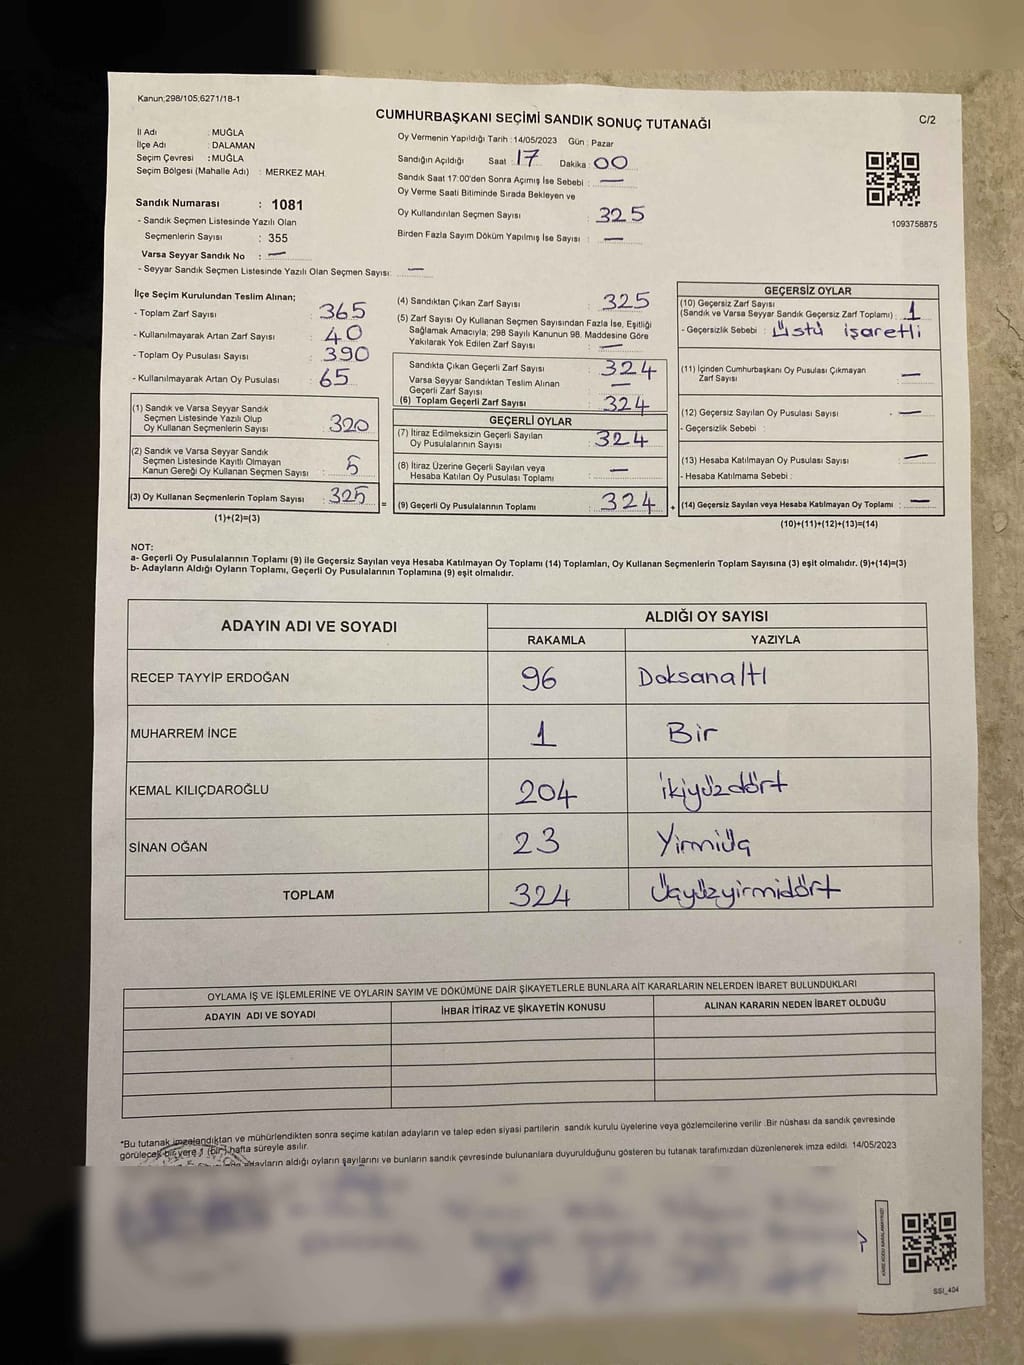 Kanun;298/105,6271/18-1
CUMHURBAŞKANI SEÇİMİ SANDIK SONUÇ TUTANAĞI
C/2
İl Adı : MUĞLA
İlçe Adı : DALAMAN
Seçim Çevresi : MUĞLA
Seçim Bölgesi (Mahalle Adı) : MERKEZ MAH.
Sandık Numarası : 1081
- Sandık Seçmen Listesinde Yazılı Olan
Seçmenlerin Sayısı : 355
Varsa Seyyar Sandık No : —
- Seyyar Sandık Seçmen Listesinde Yazılı Olan Seçmen Sayısı: —
Oy Vermenin Yapıldığı Tarih : 14/05/2023 Gün : Pazar
Sandığın Açıldığı Saat : 17 Dakika : 00
Sandık Saat 17:00'den Sonra Açımış İse Sebebi : —
Oy Verme Saati Bitiminde Sırada Bekleyen ve
Oy Kullandırılan Seçmen Sayısı : 325
Birden Fazla Sayım Döküm Yapılmış İse Sayısı : —
1093758875
İlçe Seçim Kurulundan Teslim Alınan;
- Toplam Zarf Sayısı : 365
- Kullanılmayarak Artan Zarf Sayısı : 40
- Toplam Oy Pusulası Sayısı : 390
- Kullanılmayarak Artan Oy Pusulası : 65
(1) Sandık ve Varsa Seyyar Sandık
Seçmen Listesinde Yazılı Olup
Oy Kullanan Seçmenlerin Sayısı : 320
(2) Sandık ve Varsa Seyyar Sandık
Seçmen Listesinde Kayıtlı Olmayan
Kanun Gereği Oy Kullanan Seçmen Sayısı : 5
(3) Oy Kullanan Seçmenlerin Toplam Sayısı : 325
(1)+(2)=(3)
=
(4) Sandıktan Çıkan Zarf Sayısı : 325
(5) Zarf Sayısı Oy Kullanan Seçmen Sayısından Fazla İse, Eşitliği
Sağlamak Amacıyla; 298 Sayılı Kanunun 98. Maddesine Göre
Yakılarak Yok Edilen Zarf Sayısı : —
Sandıkta Çıkan Geçerli Zarf Sayısı : 324
Varsa Seyyar Sandıktan Teslim Alınan
Geçerli Zarf Sayısı : —
(6) Toplam Geçerli Zarf Sayısı : 324
GEÇERLİ OYLAR
(7) İtiraz Edilmeksizin Geçerli Sayılan
Oy Pusulalarının Sayısı : 324
(8) İtiraz Üzerine Geçerli Sayılan veya
Hesaba Katılan Oy Pusulası Toplamı : —
(9) Geçerli Oy Pusulalarının Toplamı : 324
+
GEÇERSİZ OYLAR
(10) Geçersiz Zarf Sayısı
(Sandık ve Varsa Seyyar Sandık Geçersiz Zarf Toplamı) : 1
- Geçersizlik Sebebi : Üstü işaretli
(11) İçinden Cumhurbaşkanı Oy Pusulası Çıkmayan
Zarf Sayısı : —
(12) Geçersiz Sayılan Oy Pusulası Sayısı : —
- Geçersizlik Sebebi :
(13) Hesaba Katılmayan Oy Pusulası Sayısı : —
- Hesaba Katılmama Sebebi :
(14) Geçersiz Sayılan veya Hesaba Katılmayan Oy Toplamı : —
(10)+(11)+(12)+(13)=(14)
NOT:
a- Geçerli Oy Pusulalarının Toplamı (9) ile Geçersiz Sayılan veya Hesaba Katılmayan Oy Toplamı (14) Toplamları, Oy Kullanan Seçmenlerin Toplam Sayısına (3) eşit olmalıdır. (9)+(14)=(3)
b- Adayların Aldığı Oyların Toplamı, Geçerli Oy Pusulalarının Toplamına (9) eşit olmalıdır.
ADAYIN ADI VE SOYADI
ALDIĞI OY SAYISI
RAKAMLA YAZIYLA
RECEP TAYYİP ERDOĞAN 96 Doksanaltı
MUHARREM İNCE 1 Bir
KEMAL KILIÇDAROĞLU 204 ikiyüzdört
SİNAN OĞAN 23 Yirmiüç
TOPLAM 324 Üçyüzyirmidört
OYLAMA İŞ VE İŞLEMLERİNE VE OYLARIN SAYIM VE DÖKÜMÜNE DAİR ŞİKAYETLERLE BUNLARA AİT KARARLARIN NELERDEN İBARET BULUNDUKLARI
ADAYIN ADI VE SOYADI İHBAR İTİRAZ VE ŞİKAYETİN KONUSU ALINAN KARARIN NEDEN İBARET OLDUĞU
*Bu tutanak imzalandıktan ve mühürlendikten sonra seçime katılan adayların ve talep eden siyasi partilerin sandık kurulu üyelerine veya gözlemcilerine verilir .Bir nüshası da sandık çevresinde
görülecek bir yere 1 (bir) hafta süreyle asılır.
adayların aldığı oyların sayılarını ve bunların sandık çevresinde bulunanlara duyurulduğunu gösteren bu tutanak tarafımızdan düzenlenerek imza edildi. 14/05/2023
KARE KODU KARALAMAYINIZ!
SSI_404